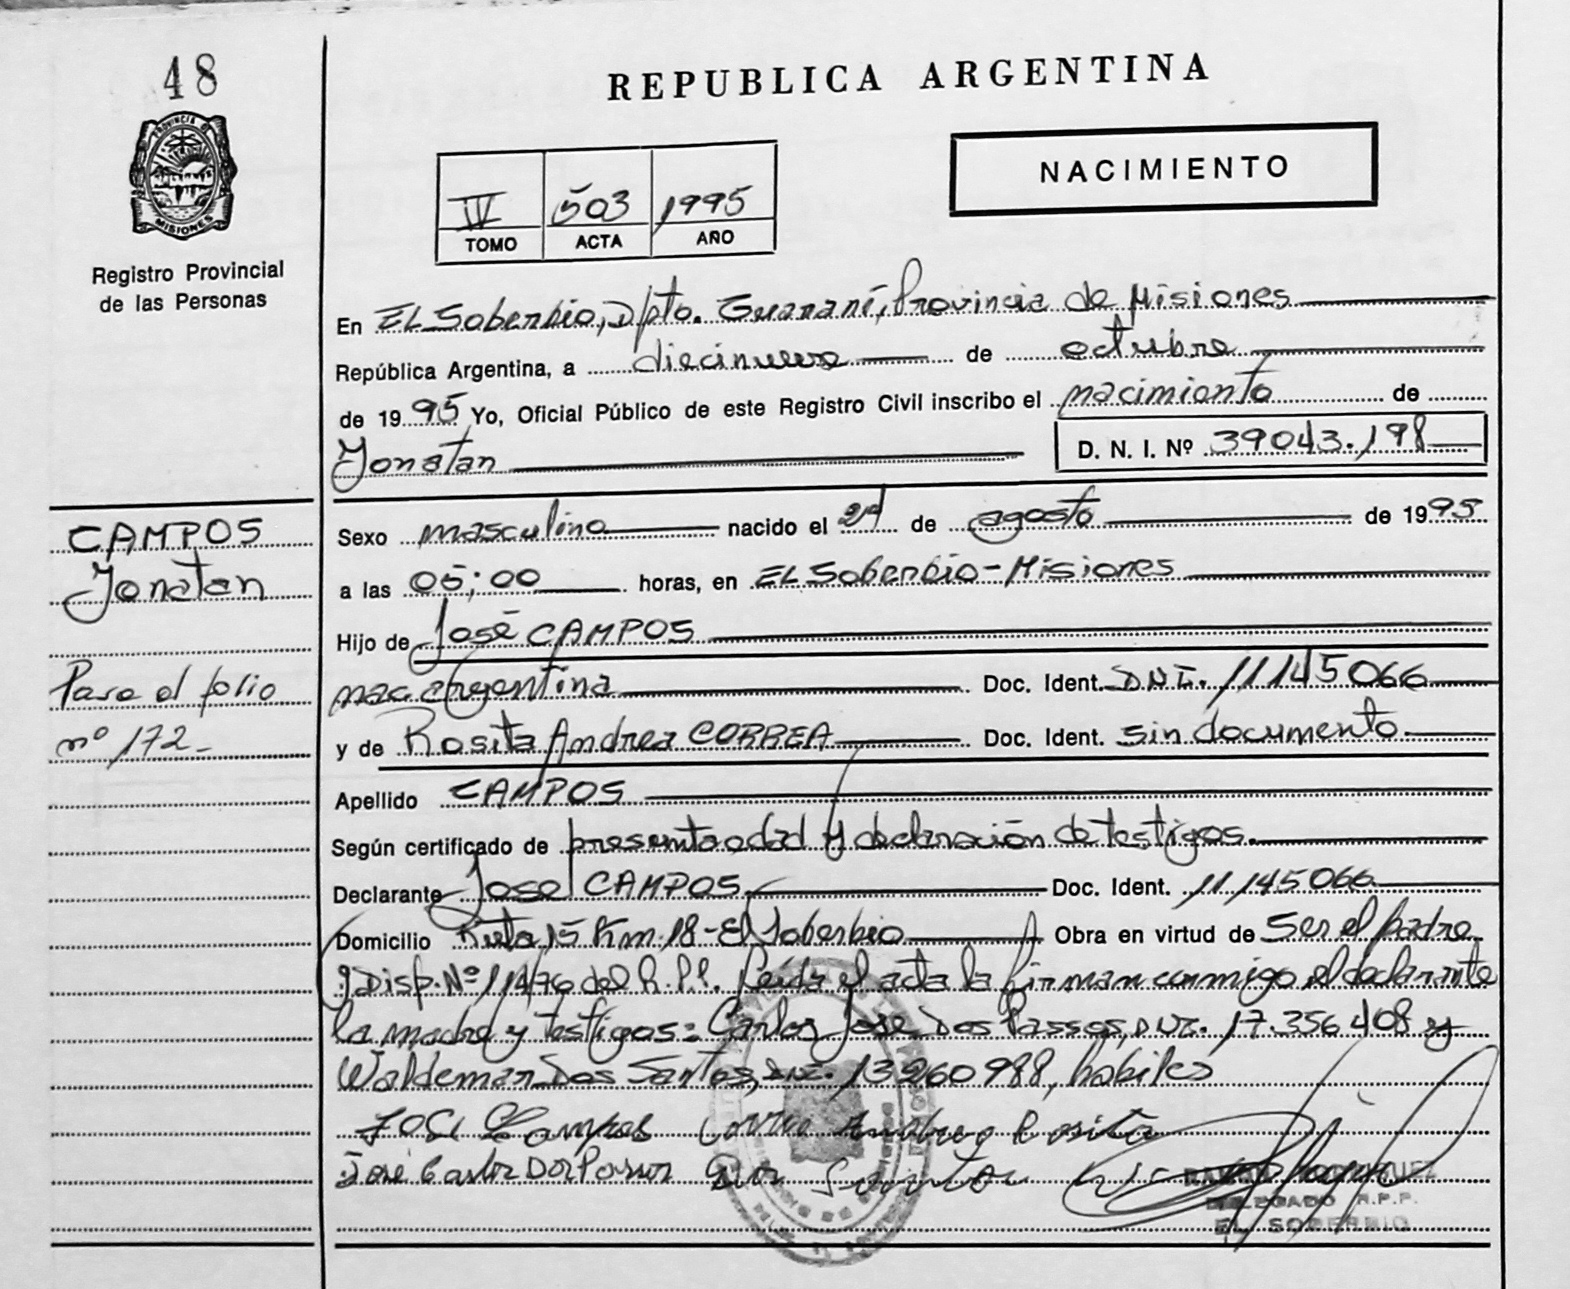 48
REPUBLICA ARGENTINA
PROVINCIA D
MISIONES
Registro Provincial
de las Personas
NACIMIENTO
IV 503 1995
TOMO ACTA AÑO
En EL Soberbio, Dpto. Guaraní, Provincia de Misiones
República Argentina, a diecinueve de octubre
de 1995 Yo, Oficial Público de este Registro Civil inscribo el nacimiento de
Jonatan D. N. I. Nº 39043.198
CAMPOS
Jonatan
Pase al folio
nº 172-
Sexo masculino nacido el de agosto de 1995
a las 05;00 horas, en EL Soberbio - Misiones
Hijo de José CAMPOS
nac argentina Doc. Ident. D.N.I. 11145066
y de Rosita Andrea CORREA Doc. Ident. sin documento
Apellido CAMPOS
Según certificado de y declaración de testigos.
Declarante José CAMPOS Doc. Ident. 11,145066
Domicilio Ruta 15 Km 18 - El Soberbio Obra en virtud de Ser el padre
y Disp. Nº 114/76 del R.P.P. Leída el acta la firman conmigo el declarante
la madre y testigos: Carlos José Dos Passos, D.N.I. 17.356.408 y
Waldemar Dos Santos, D.N.I. 13260988, hábiles
José Campos Correa Andrea Rosita
José Carlos Dos Passos Dos Santos
DELEGADO R.P.P.
EL SOBERBIO